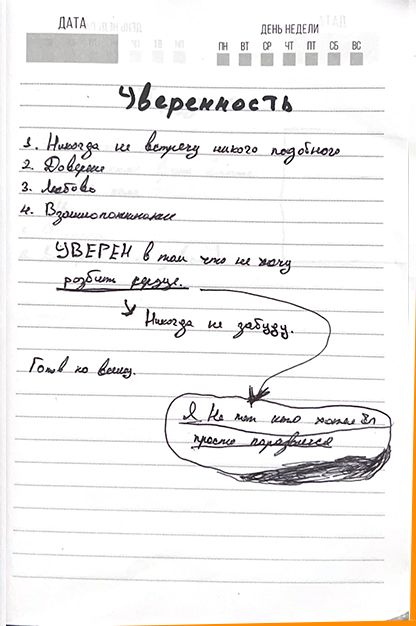 ДАТА
ДЕНЬ НЕДЕЛИ
ПН ВТ СР ЧТ ПТ СБ ВС
Уверенность
1. Никогда не встречу никого подобного
2. Доверие
3. Любовь
4. Взаимопонимание
УВЕРЕН в том что не хочу
разбить сердце.
Никогда не забуду.
Готов ко всему.
Я не тот кто хотел бы
просто поразвлечься